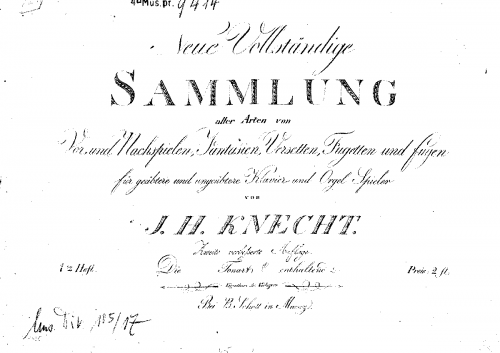 4° Mus. pr. 9414
Neue Vollständige
SAMMLUNG
aller Arten von
Vor und Nachspielen, Fantasien, Versetten, Fugetten und fugen
für geübtere und ungeübtere Klavier und Orgel Spieler
von
J. H. KNECHT.
Zweite verbesserte Auflage.
1tes Heft. Die Tonart enthaltend Preis 2 fl.
Bei B. Schott in Mainz.
Mus. Div 115/17